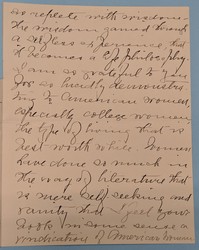 so replete with wisdom –
the wisdom gained through
a selfless experience, that
it becomes a philosophy.
I am so grateful to you
for so frankly demonstra
ting to American women,
especially college women,
the type of home that is
best worth while. Women
have done so much in
the way of literature that
is mere self seeking and
vanity that I feel your
book in some sense a
vindication of American women